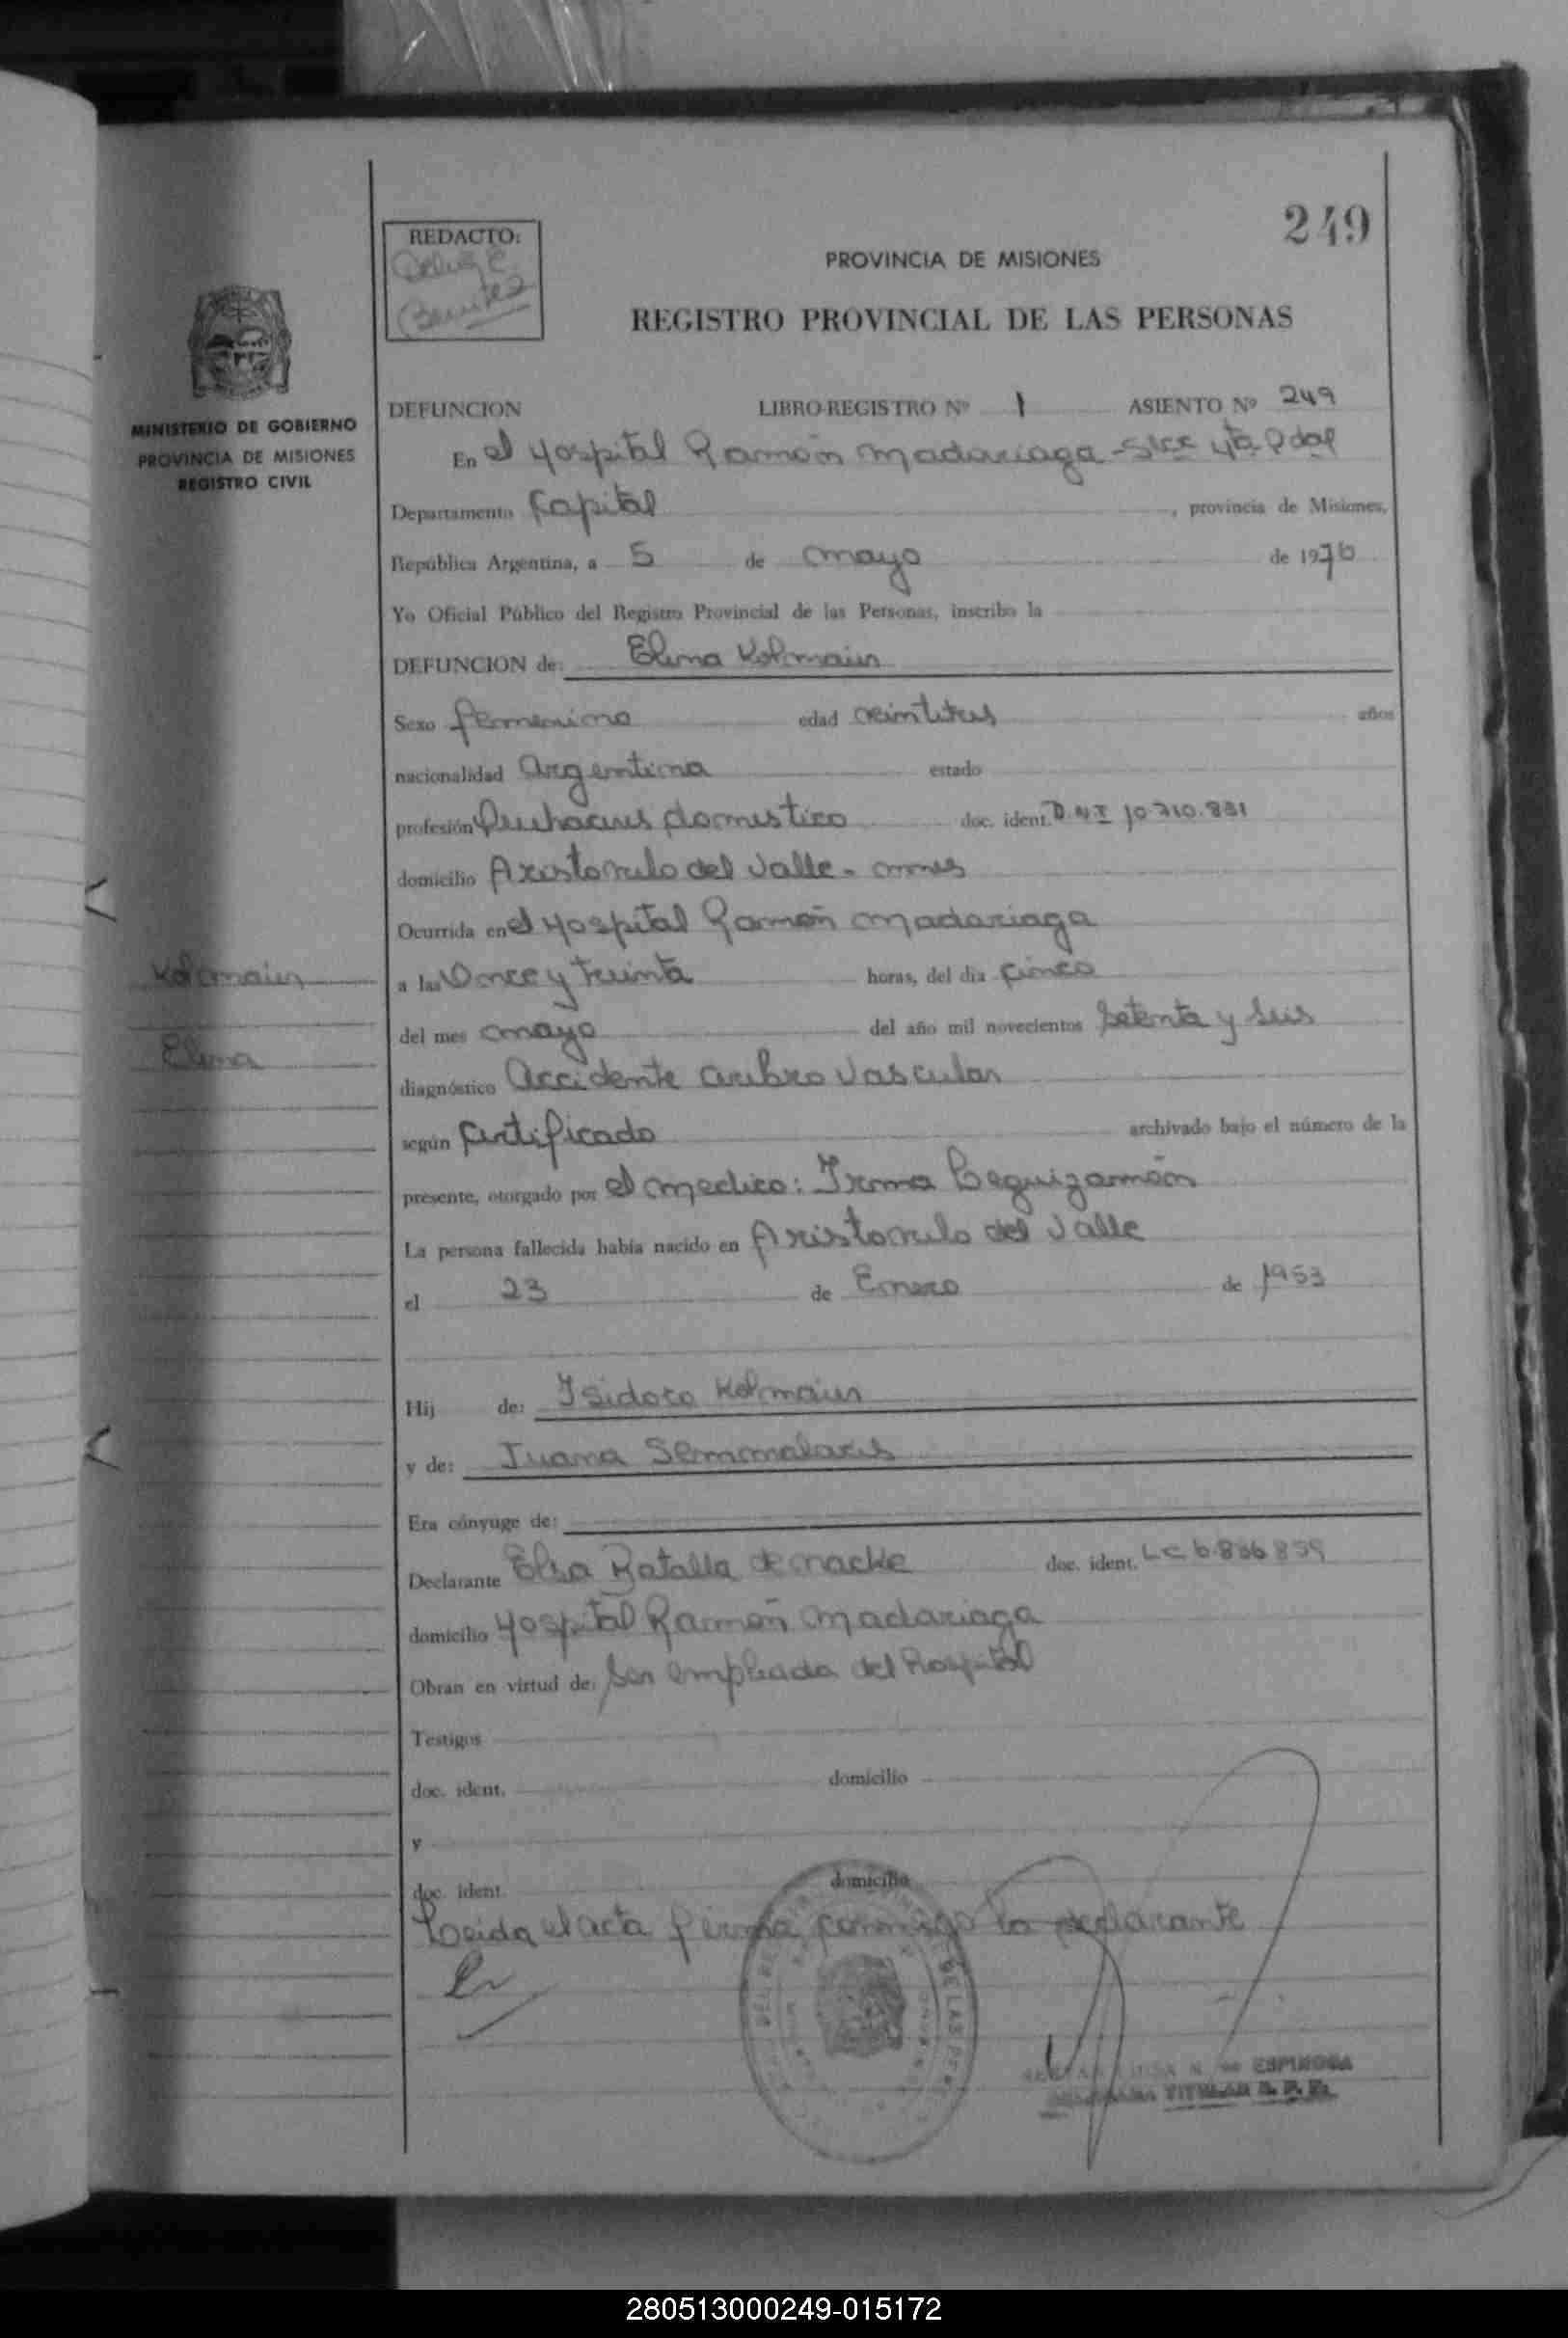 249
REDACTO:
Benitez
PROVINCIA DE MISIONES
REGISTRO PROVINCIAL DE LAS PERSONAS
MINISTERIO DE GOBIERNO
PROVINCIA DE MISIONES
REGISTRO CIVIL
DEFUNCION LIBRO-REGISTRO Nº 1 ASIENTO Nº 249
En el Hospital Ramón Madariaga - Secc 4ta Pdas
Departamento Capital, provincia de Misiones,
República Argentina, a 5 de mayo de 1976
Yo Oficial Público del Registro Provincial de las Personas, inscribo la
DEFUNCION de: Elena Kolmaier
Sexo femenino edad veintitres años
nacionalidad Argentina estado
profesión Quehaceres domestico doc. ident. D.N.I 10.710.831
domicilio Aristobulo del Valle - mnes
Ocurrida en el Hospital Ramón Madariaga
Kolmaier
a las Once y treinta horas, del día cinco
del mes mayo del año mil novecientos setenta y seis
Elena
diagnóstico Accidente cerebro vascular
según certificado archivado bajo el número de la
presente, otorgado por el medico: Irma Leguizamón
La persona fallecida había nacido en Aristobulo del Valle
el 23 de Enero de 1953
Hij de: Isidoro Kolmaier
y de: Juana
Era cónyuge de:
Declarante Elsa Batalla de Macke doc. ident. LC 6.836.859
domicilio Hospital Ramón Madariaga
Obran en virtud de: ser empleada del hospital
Testigos
doc. ident. domicilio
y
doc. ident. domicilio
Leida el acta firma conmigo la declarante
ESPINOSA
TITULAR R. P. P.
280513000249-015172